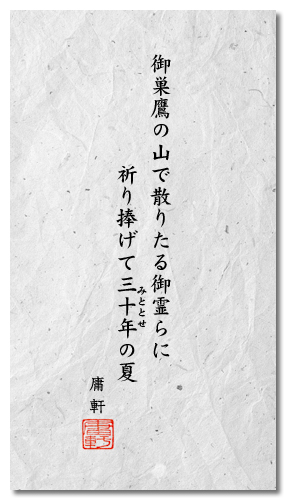 御巣鷹の山で散りたる御霊らに
祈り捧げて三十年の夏
みととせ
庸軒
庸軒